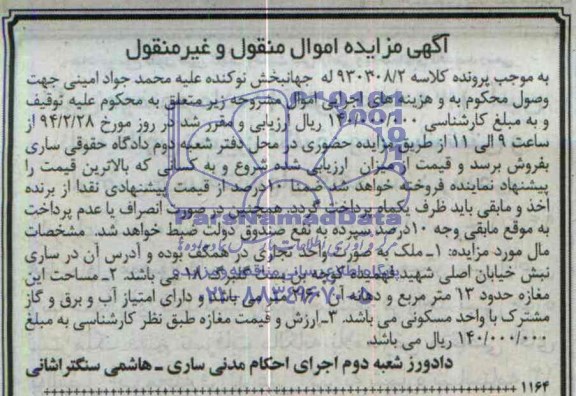 آگهی مزایده اموال منقول و غیرمنقول
به موجب پرونده کلاسه ۹۳۰۳۰۸/۲ له جهانبخش نوکنده علیه محمد جواد امینی جهت
وصول محکوم به و هزینه های اجرایی اموال مشروحه زیر متعلق به محکوم علیه توقیف
و به مبلغ کارشناسی ریال ارزیابی و مقرر شد در روز مورخ ۹۴/۲/۲۸ از
ساعت ۹ الی ۱۱ از طریق مزایده حضوری در محل دفتر شعبه دوم دادگاه حقوقی ساری
بفروش برسد و قیمت از میزان ارزیابی شده شروع و به کسانی که بالاترین قیمت را
پیشنهاد نماینده فروخته خواهد شد ضمنا ۱۰درصد از قیمت پیشنهادی نقدا از برنده
اخذ و مابقی باید ظرف یکماه پرداخت گردد. همچنین در صورت انصراف یا عدم پرداخت
به موقع مابقی وجه ۱۰درصد سپرده به نفع صندوق دولت ضبط خواهد شد. مشخصات
مال مورد مزایده: ۱ـ ملک به صورت واحد تجاری در همکف بوده و آدرس آن در ساری
نبش خیابان اصلی شهید فهمیده کوچه بن بست گلبرگ ۱۸ می باشد. ۲ـ مساحت این
مغازه حدود ۱۳ متر مربع و دهانه آن متر می باشد و دارای امتیاز آب و برق و گاز
مشترک با واحد مسکونی می باشد. ۳ـ ارزش و قیمت مغازه طبق نظر کارشناسی به مبلغ
۱۴۰/۰۰۰/۰۰۰ ریال می باشد.
دادورز شعبه دوم اجرای احکام مدنی ساری ـ هاشمی سنگتراشانی
۱۱۶۴
ParsNamadData
۰۲۱-۸۸۳۴۹۶۷۰